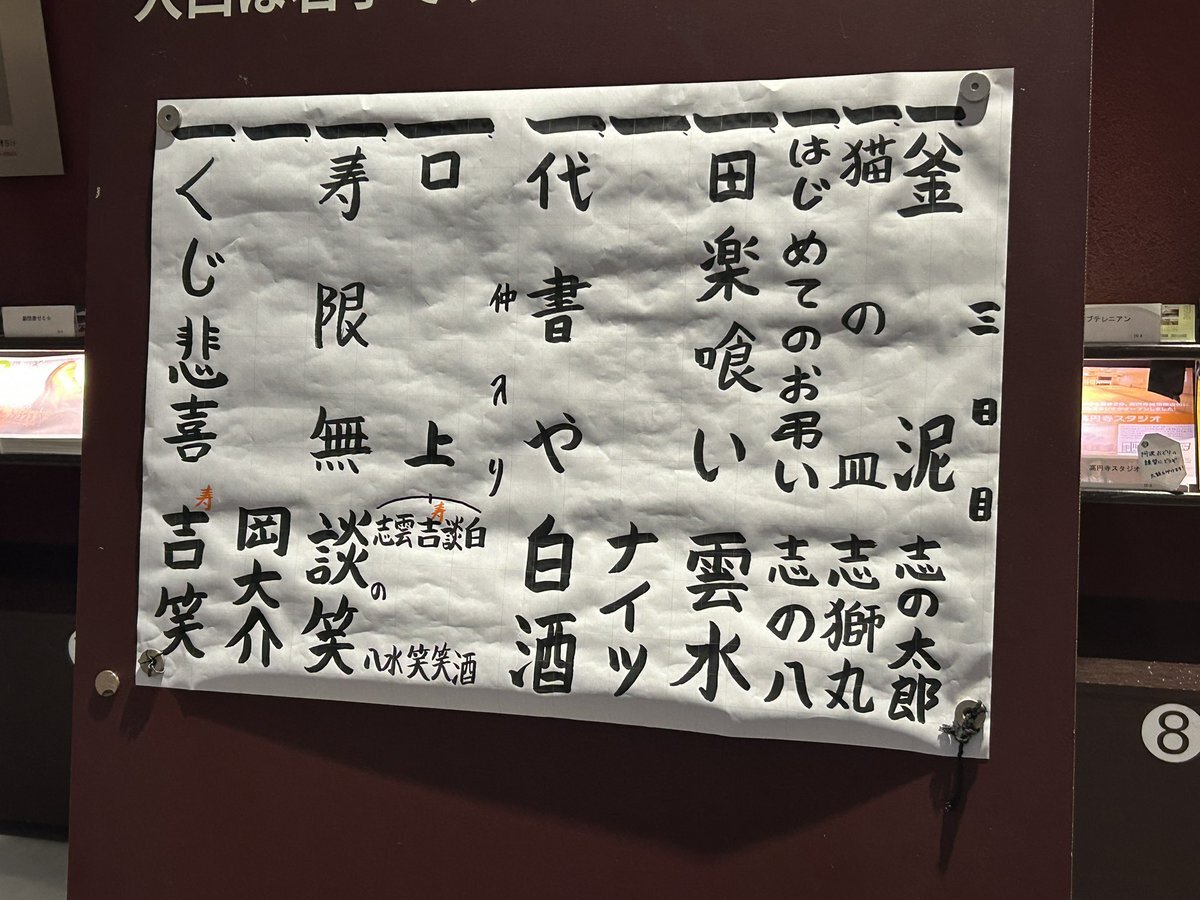 三日目
一 釜泥 志の太郎
一 猫の皿 志獅丸
一 はじめてのお弔い 志の八
一 田楽喰い 雲水
一 ナイツ
一 代書や 白酒
仲入り
一 口上 白酒 談笑 寿 吉笑 雲水 志の八
一 寿限無 談笑
一 岡大介
一 くじ悲喜 寿 吉笑
高円寺スタジオ
高円寺スタジオ
8